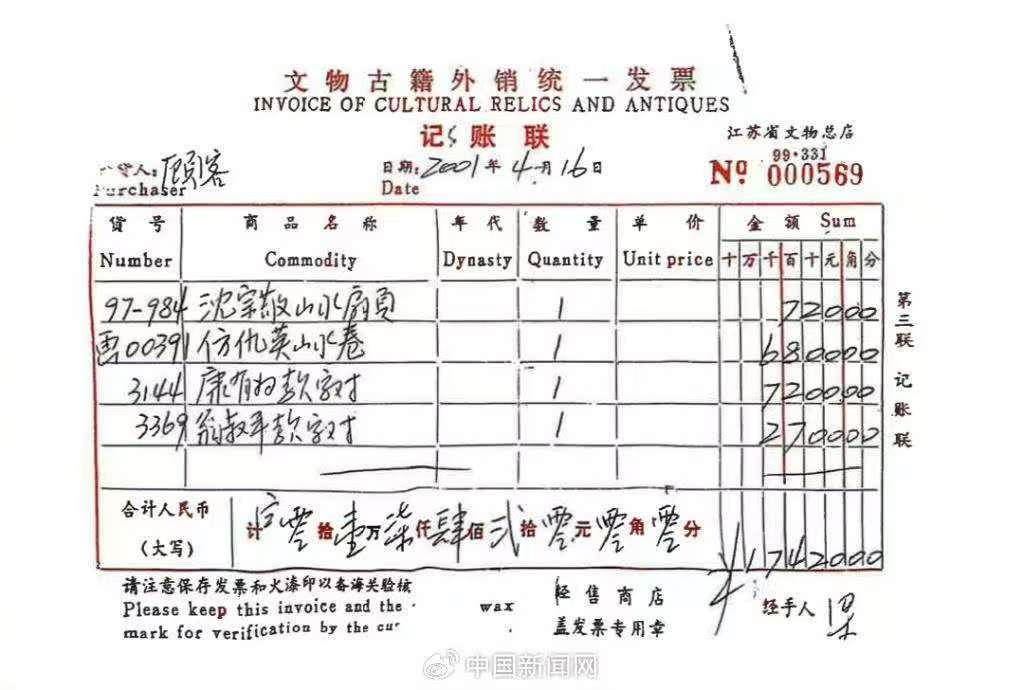 文物古籍外销统一发票
INVOICE OF CULTURAL RELICS AND ANTIQUES
记账联
江苏省文物总店
99·331
Nº 000569
货人: 顾客
Purchaser
日期: 2001年4月16日
Date
货号 商品名称 年代 数量 单价 金额 Sum
Number Commodity Dynasty Quantity Unit price 十万千百十元角分
97-984 沈宗敬山水扇页 1 72000
画00391 仿仇英山水卷 1 680000
3144 康有为款字对 1 720000
3369 翁叔平款字对 1 270000
合计人民币
(大写)
计 零拾壹万柒仟肆佰贰拾零元零角零分
¥1742000
第三联 记账联
请注意保存发票和火漆印以备海关验核
Please keep this invoice and the wax
mark for verification by the cu
经售商店
盖发票专用章
经手人
中国新闻网